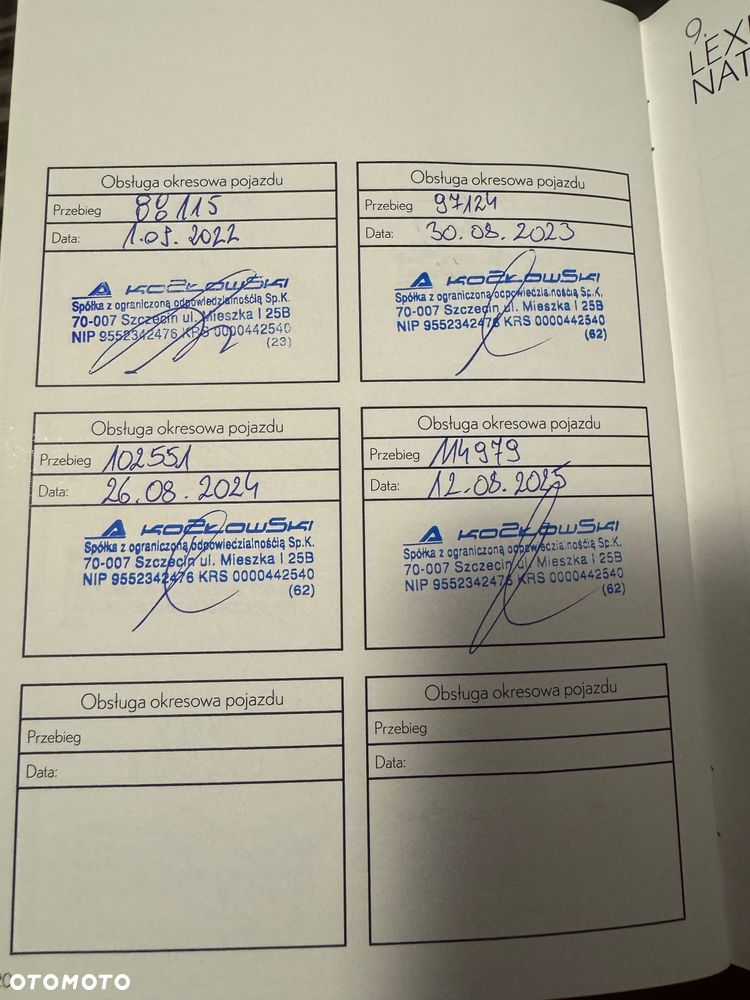 9.
LEX
NAT
Obsługa okresowa pojazdu
Przebieg 88115
Data: 1.09.2022
KOZŁOWSKI
Spółka z ograniczoną odpowiedzialnością Sp.K.
70-007 Szczecin ul. Mieszka I 25B
NIP 9552342476 KRS 0000442540
(23)
Obsługa okresowa pojazdu
Przebieg 97124
Data: 30.08.2023
KOZŁOWSKI
Spółka z ograniczoną odpowiedzialnością Sp.K.
70-007 Szczecin ul. Mieszka I 25B
NIP 9552342476 KRS 0000442540
(62)
Obsługa okresowa pojazdu
Przebieg 102551
Data: 26.08.2024
KOZŁOWSKI
Spółka z ograniczoną odpowiedzialnością Sp.K.
70-007 Szczecin ul. Mieszka I 25B
NIP 9552342476 KRS 0000442540
(62)
Obsługa okresowa pojazdu
Przebieg 114979
Data: 12.08.2025
KOZŁOWSKI
Spółka z ograniczoną odpowiedzialnością Sp.K.
70-007 Szczecin ul. Mieszka I 25B
NIP 9552342476 KRS 0000442540
(62)
Obsługa okresowa pojazdu
Przebieg
Data:
Obsługa okresowa pojazdu
Przebieg
Data:
OTOMOTO